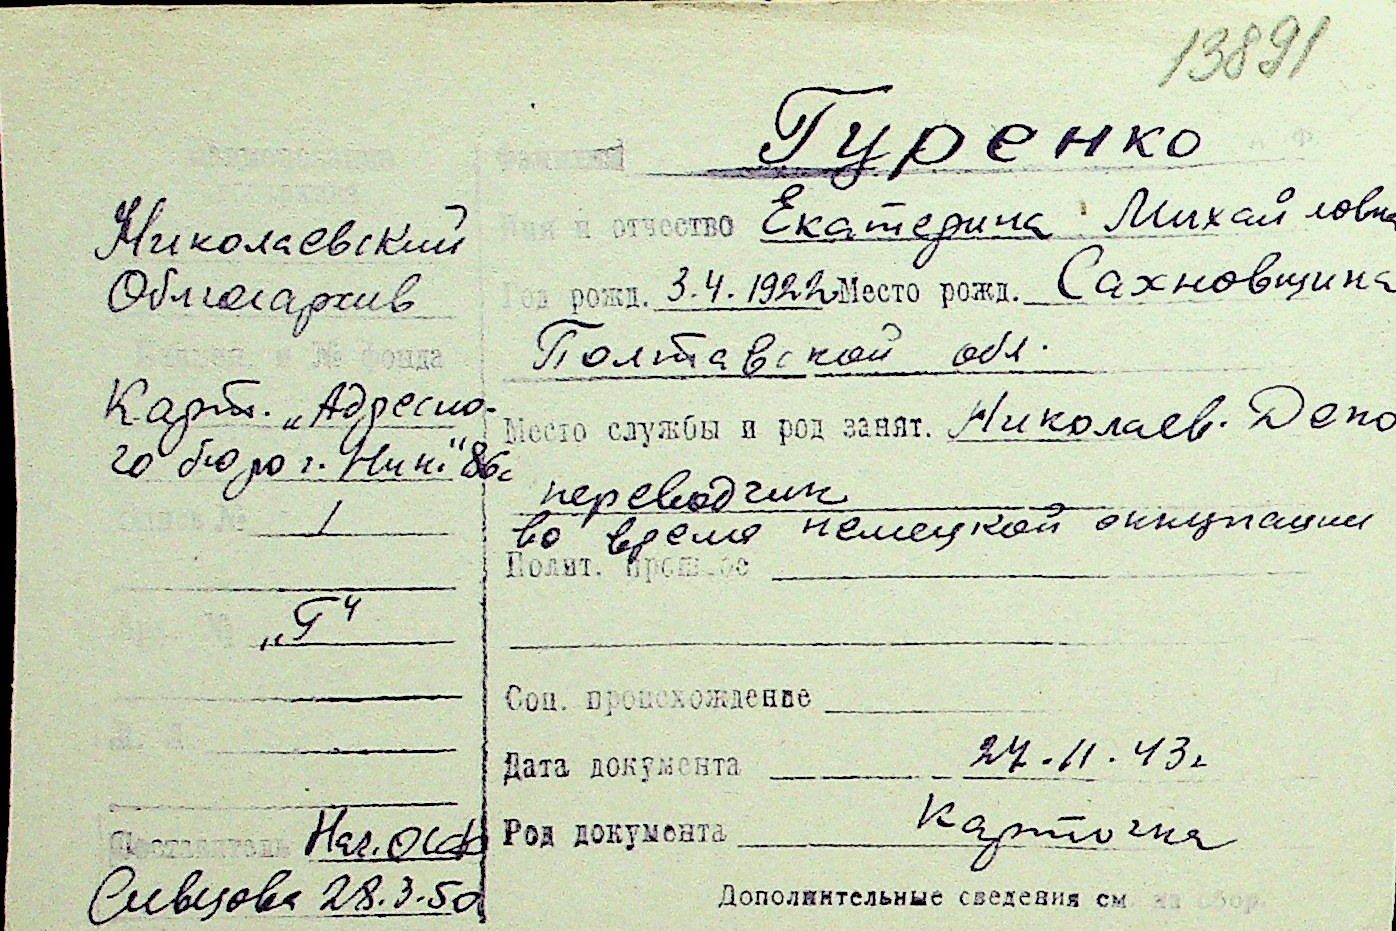 13891
Фамилия Гуренко
Имя и отчество Екатерина Михайловна
Год рожд. 3.4.1922 Место рожд. Сахновщина
Полтавской обл.
Место службы и род занят. Николаев. Депо
переводчик
во время немецкой оккупации
Полит. прошлое
Соц. происхождение
Дата документа 27.11.43г
Род документа Карточка
Дополнительные сведения см. на обор.
Николаевский
Облгосархив
№ фонда
Карт. „Адресно-
го бюро г. Ник." 86с
Опись № 1
„Г"
Составитель Нач. ОСФ
Сивцова 28.3.50